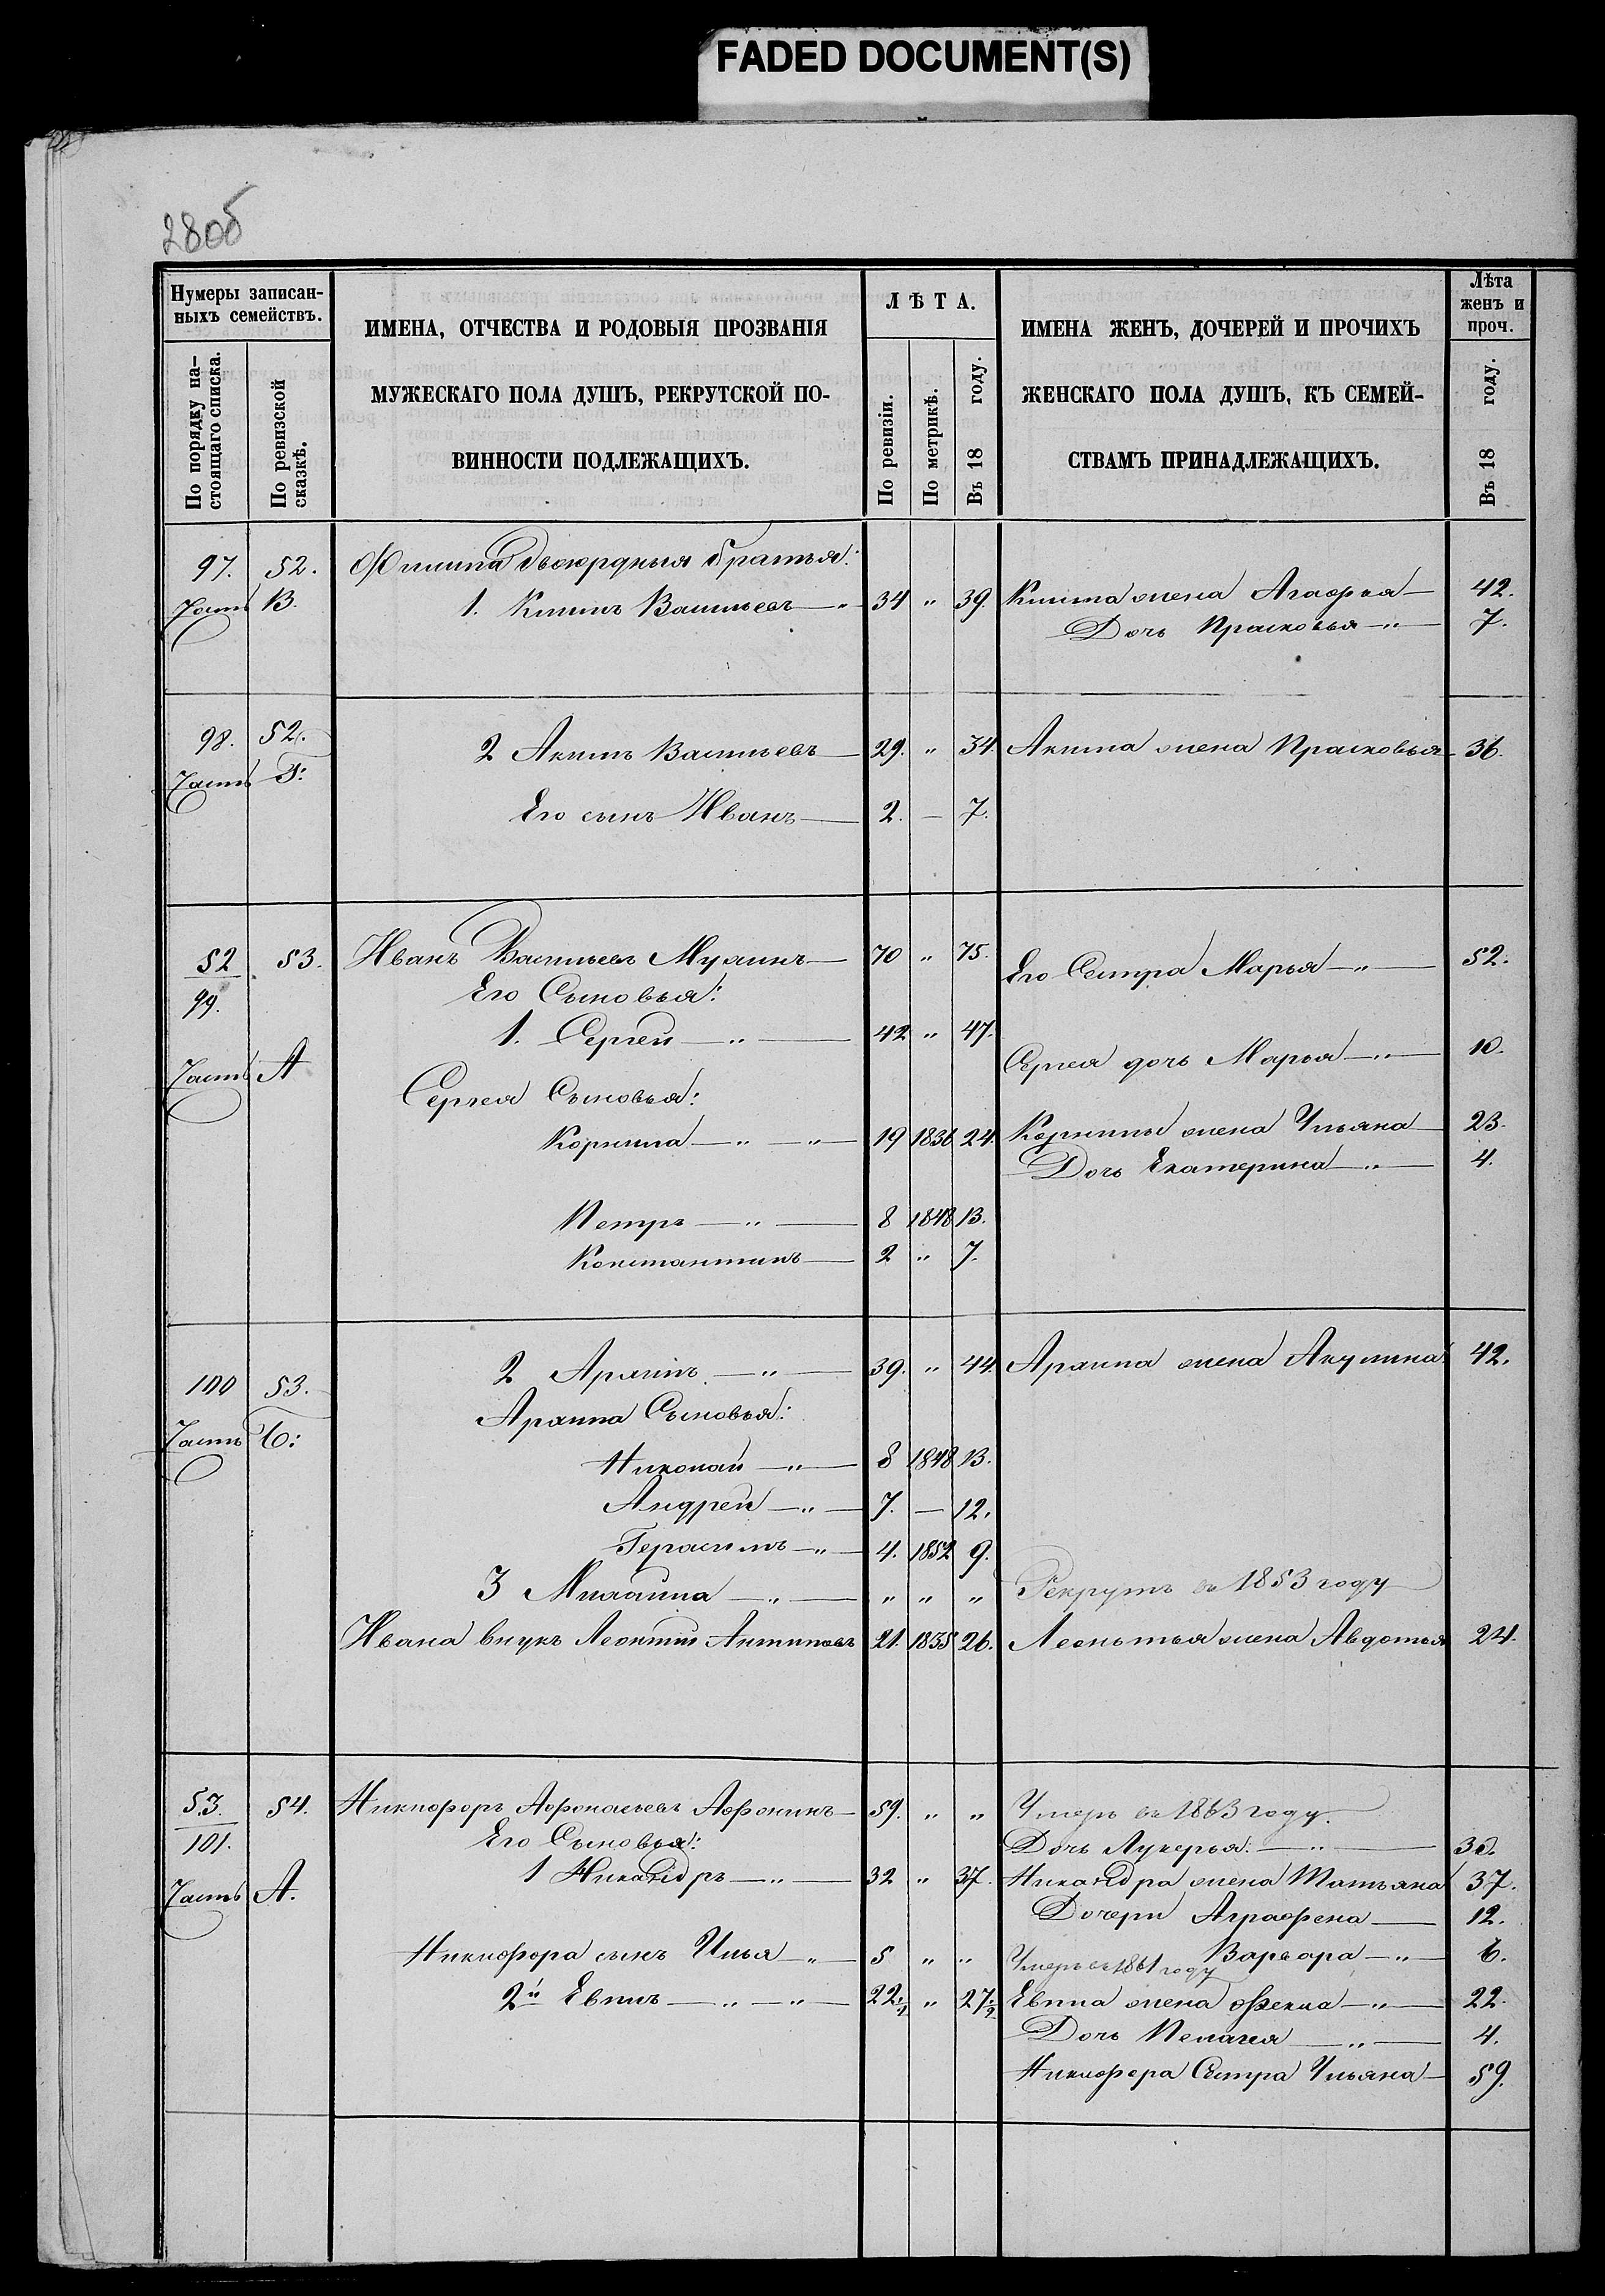 FADED DOCUMENT(S)
28об
Нумеры записан-
ныхъ семействъ.
По порядку на-
стоящаго списка.
По ревизской
сказкѣ.
ИМЕНА, ОТЧЕСТВА И РОДОВЫЯ ПРОЗВАНІЯ
МУЖЕСКАГО ПОЛА ДУШЪ, РЕКРУТСКОЙ ПО-
ВИННОСТИ ПОДЛЕЖАЩИХЪ.
ЛѢТА.
По ревизіи.
По метрикѣ.
Въ 18 году.
ИМЕНА ЖЕНЪ, ДОЧЕРЕЙ И ПРОЧИХЪ
ЖЕНСКАГО ПОЛА ДУШЪ, КЪ СЕМЕЙ-
СТВАМЪ ПРИНАДЛЕЖАЩИХЪ.
Лѣта
женъ и
проч.
Въ 18 году.
97. 52. Филипа двоюрдныя братья:
Часть В. 1. Климъ Васильевъ — " 34 " 39. Клима жена Агафья — 42.
Дочь Прасковья — " — 7.
98. 52. 2 Акимъ Васильевъ — 29. " 34. Акима жена Прасковья — 36.
Часть Г:
Его сынъ Иванъ — 2. — 7.
52 53. Иванъ Васильевъ — 70 " 75. Его Сестра Марья — " — 52.
99. Его Сыновья:
1. Сергей — " — 42 " 47.
Часть А Сергея дочь Марья — " — 10.
Сергея Сыновья:
Корнила — " — " 19 1836 24. Корнилы жена Ульяна — 23.
Дочь Екатерина — " — 4.
Петръ — " — 8 1848 13.
Константинъ — 2 " 7.
100 53. 2 Архипъ — " — 39. " 44. Архипа жена Акулина 42.
Часть Б: Архипа Сыновья:
Николай — " — 8 1848 13.
Андрей — " — 7. — 12.
Герасимъ — " — 4. 1852 9.
3 Михайла — " — " " " Рекрутъ въ 1853 году
Ивана внукъ Леонтий Антиповъ 21. 1835 26. Леонтья жена Авдотья 24.
53. 54. Никифоръ Афонасьевъ Афонинъ — 59. " " Умеръ въ 1863 году.
101. Его Сыновья: Дочь Лукерья. — " — 30.
1 Никандръ — " — 32 " 37. Никандра жена Татьяна 37.
Часть А. Дочери Аграфена — 12.
Никифора сынъ Илья — " 5 " " Умеръ въ 1861 году Варвара — " — 6.
2й Евплъ — " — " 22½ " 27½ Евпла жена Фекла — " — 22.
Дочь Пелагея — " — 4.
Никифора Сестра Ульяна — 59.